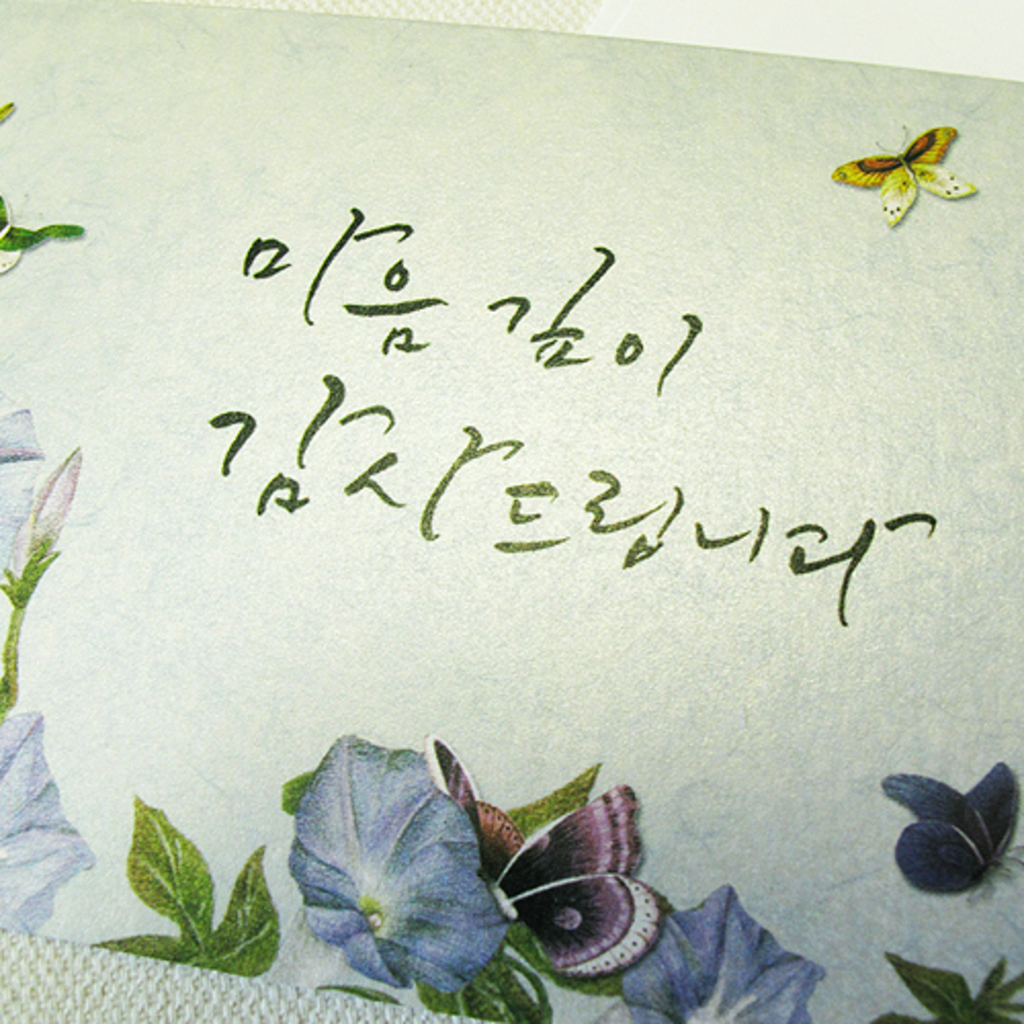 마음 깊이
감사드립니다